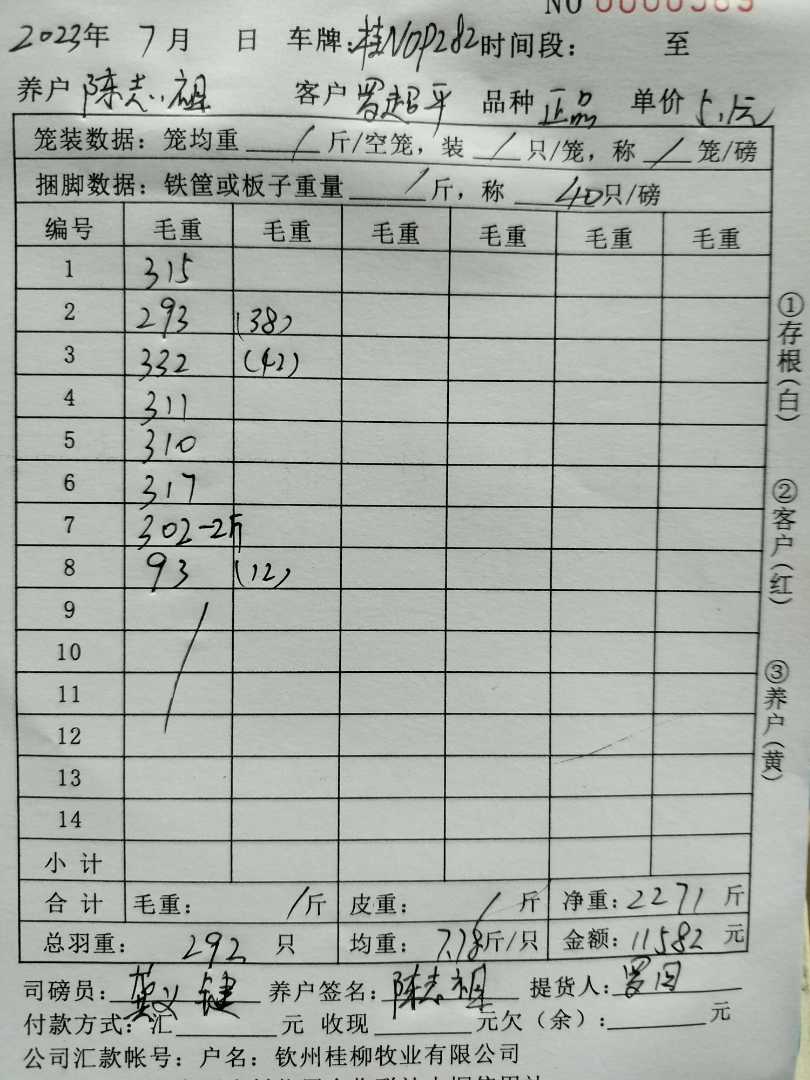 NO 0000589
2023年 7月 日 车牌:桂N0P282 时间段: 至
养户 陈志祖 客户 罗超平 品种 正品 单价 5.1元
笼装数据: 笼均重 / 斤/空笼, 装 / 只/笼, 称 / 笼/磅
捆脚数据: 铁筐或板子重量 / 斤, 称 40只/磅
编号 毛重 毛重 毛重 毛重 毛重 毛重
1 315
2 293 (38)
3 332 (42)
4 311
5 310
6 317
7 302-2斤
8 93 (12)
9 /
10
11
12
13
14
小计
合计 毛重: /斤 皮重: / 斤 净重: 2271 斤
总羽重: 292 只 均重: 7.78斤/只 金额: 11582 元
司磅员: 键 养户签名: 陈志祖 提货人: 罗
付款方式: 汇 元 收现 元欠(余): 元
公司汇款帐号: 户名: 钦州桂柳牧业有限公司
①存根(白)
②客户(红)
③养户(黄)